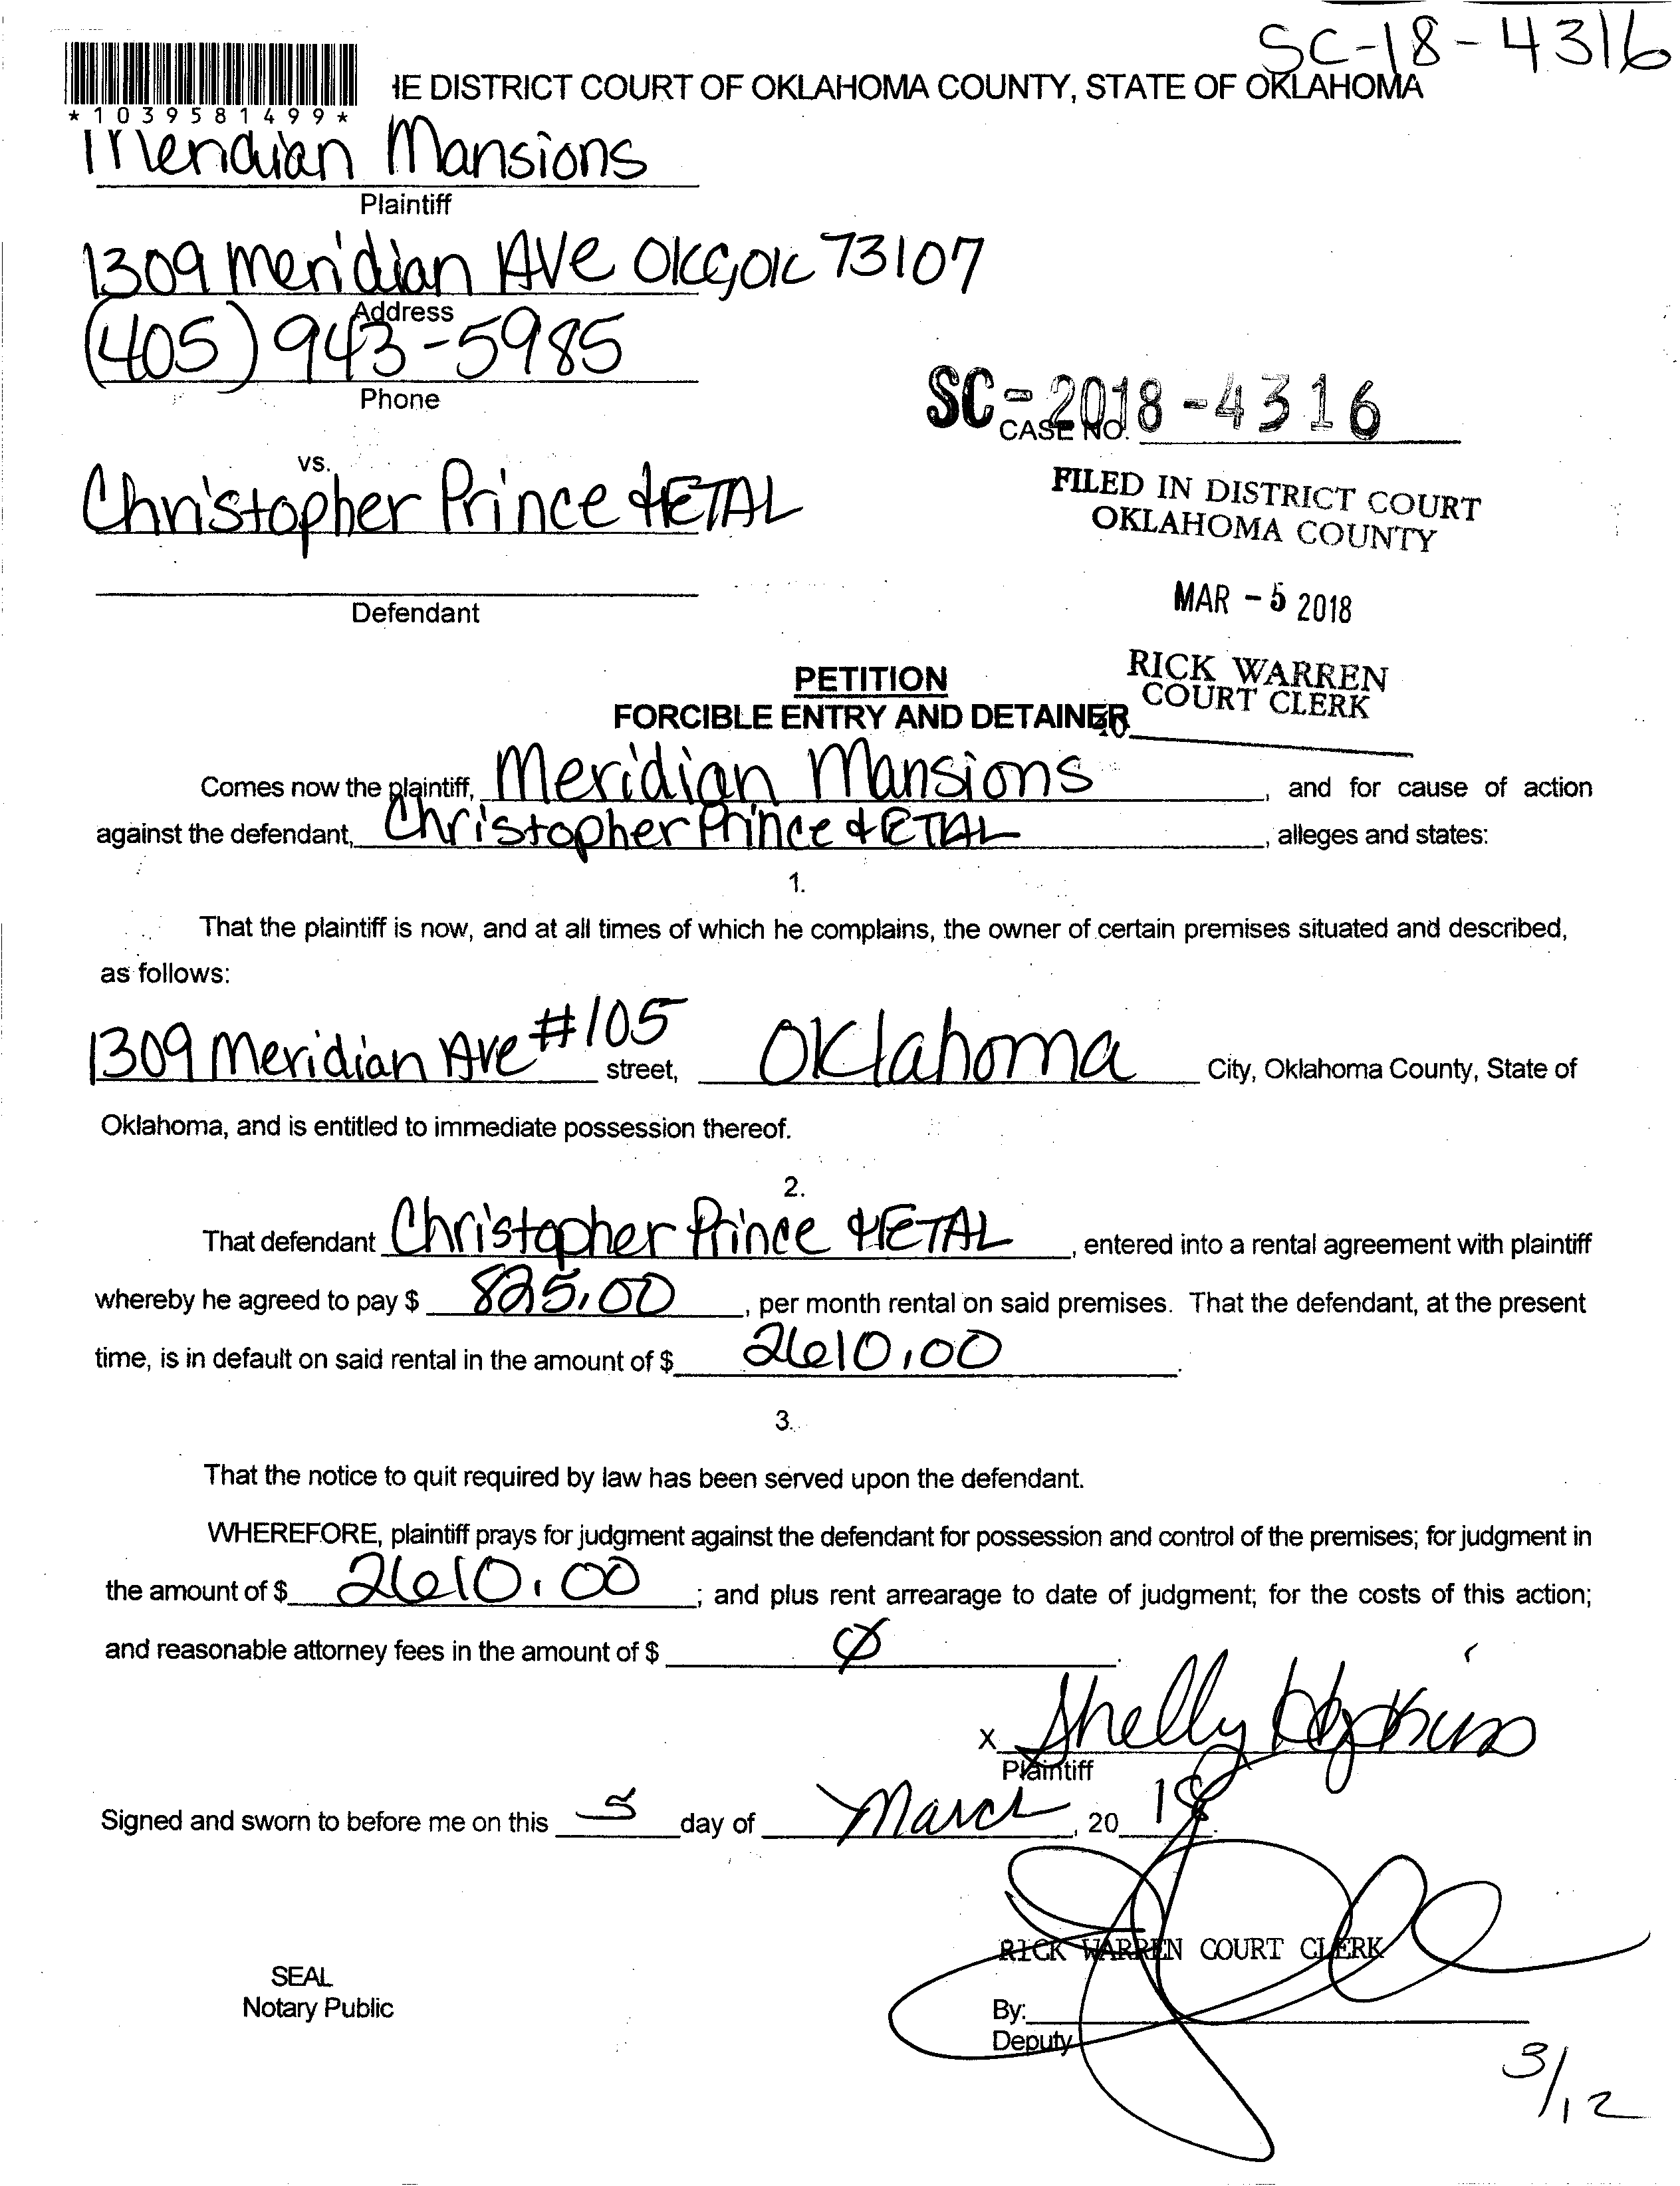 SC-18-4316
IE DISTRICT COURT OF OKLAHOMA COUNTY, STATE OF OKLAHOMA
*1039581499*
Meridian Mansions
Plaintiff
1309 Meridian Ave OKC, OK 73107
Address
(405) 943-5985
Phone
SC-2018-4316
CASE NO.
vs.
Christopher Prince & ETAL
FILED IN DISTRICT COURT
OKLAHOMA COUNTY
Defendant
MAR -5 2018
RICK WARREN
COURT CLERK
PETITION
FORCIBLE ENTRY AND DETAINER
40
Comes now the plaintiff, Meridian Mansions, and for cause of action
against the defendant, Christopher Prince & ETAL, alleges and states:
1.
That the plaintiff is now, and at all times of which he complains, the owner of certain premises situated and described,
as follows:
1309 Meridian Ave #105 street, Oklahoma City, Oklahoma County, State of
Oklahoma, and is entitled to immediate possession thereof.
2.
That defendant Christopher Prince & ETAL, entered into a rental agreement with plaintiff
whereby he agreed to pay $ 825.00, per month rental on said premises. That the defendant, at the present
time, is in default on said rental in the amount of $ 2610.00.
3.
That the notice to quit required by law has been served upon the defendant.
WHEREFORE, plaintiff prays for judgment against the defendant for possession and control of the premises; for judgment in
the amount of $ 2610.00; and plus rent arrearage to date of judgment; for the costs of this action;
and reasonable attorney fees in the amount of $ Ø.
X Shelly Hopkins
Plaintiff
Signed and sworn to before me on this 5 day of March, 20 18.
RICK WARREN COURT CLERK
SEAL
Notary Public
By:
Deputy
3/12